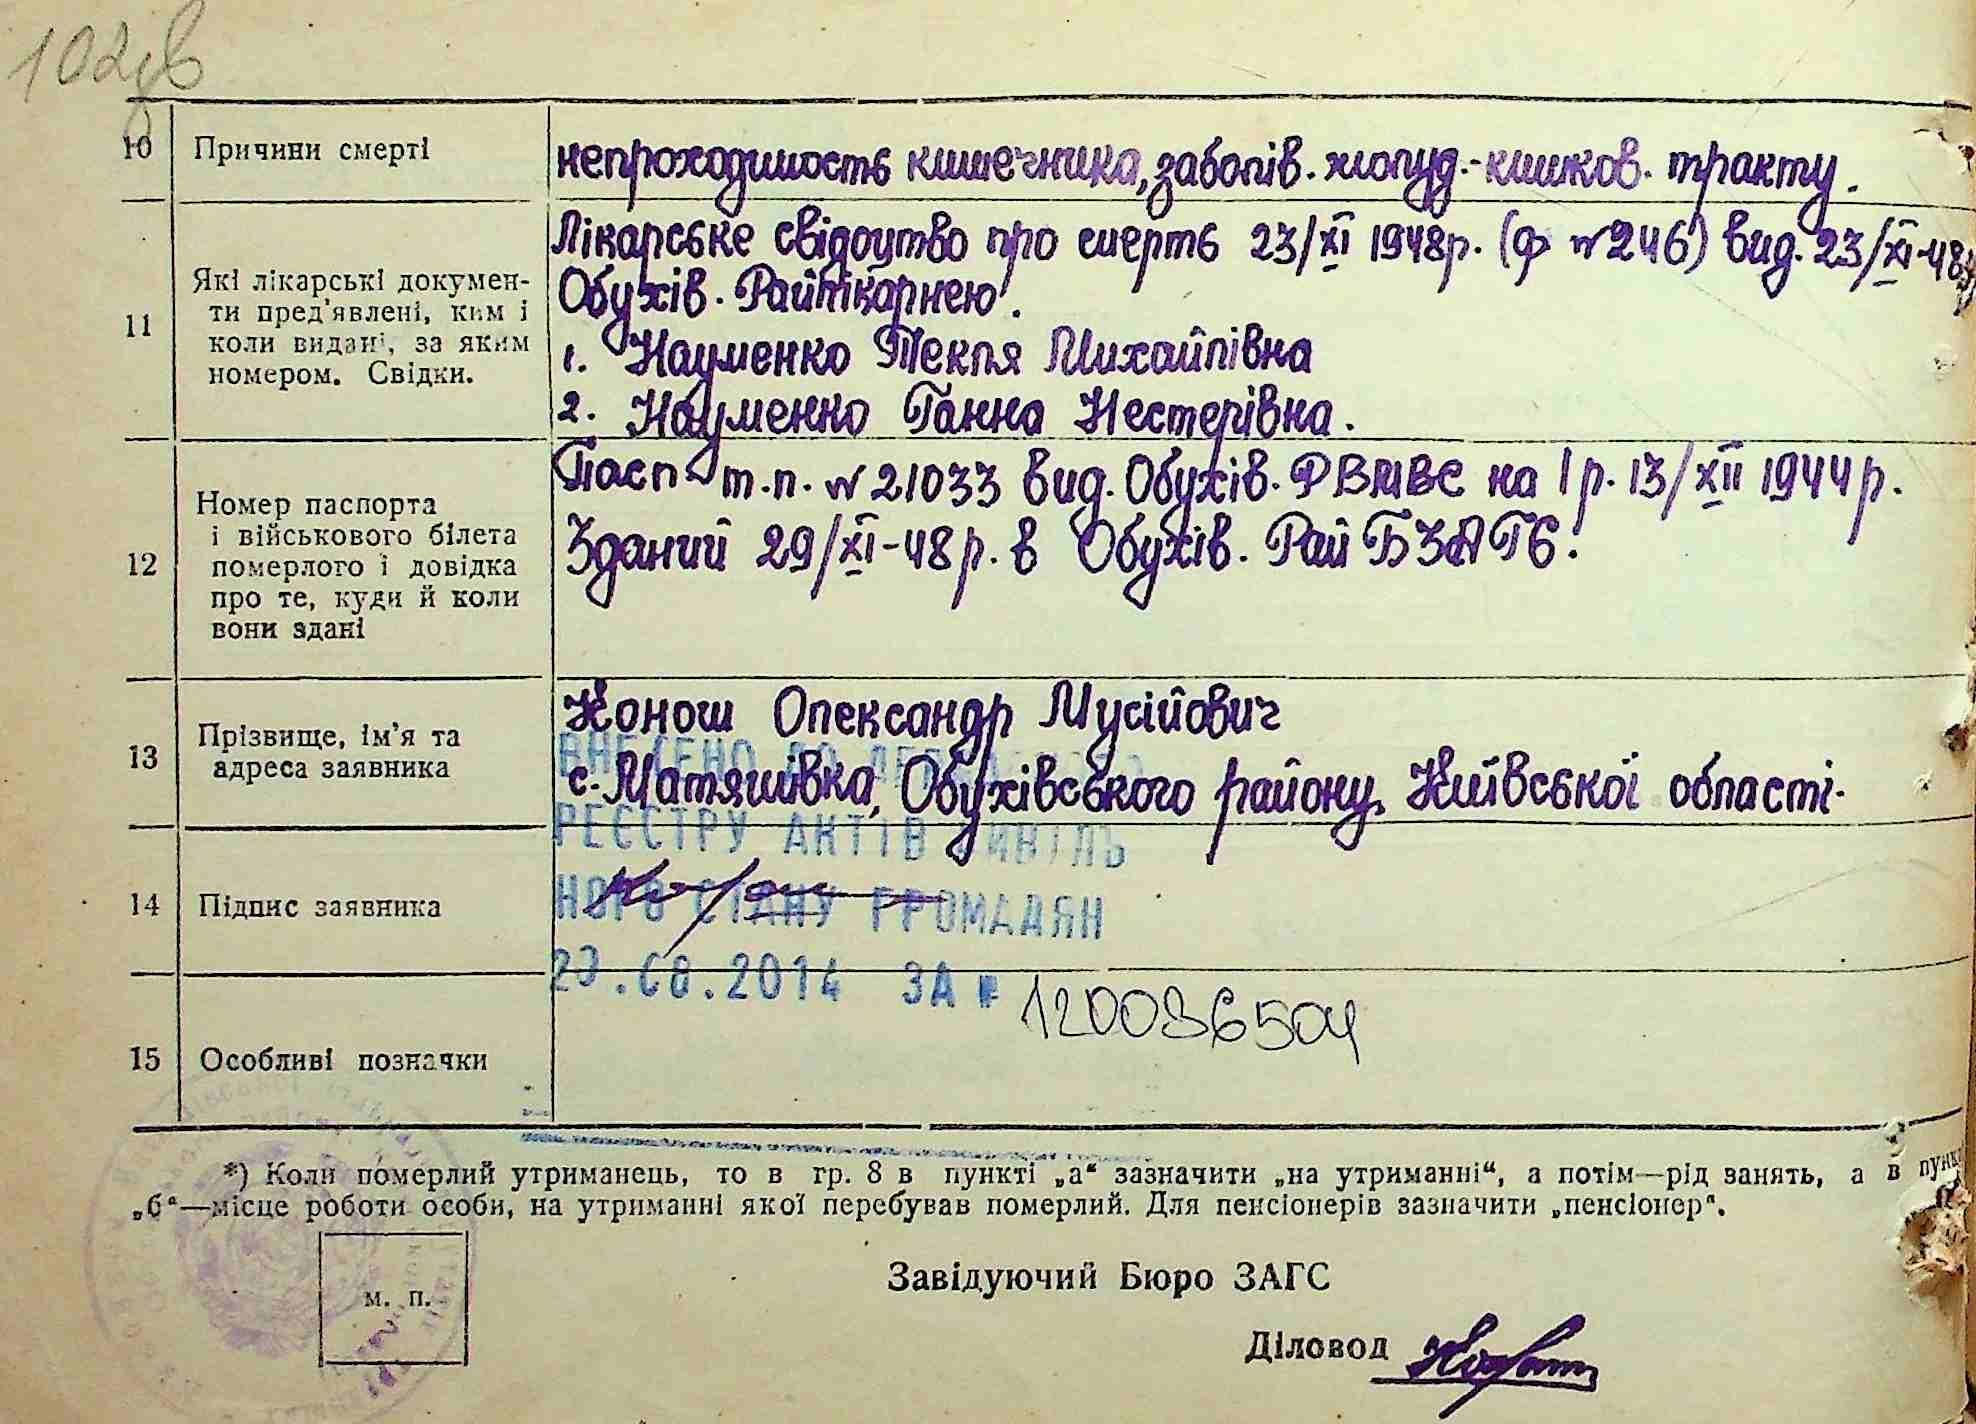 102зв
10 Причини смерті
непроходимость кишечника, заболів. шлунд.-кишков. тракту.
11 Які лікарські докумен-
ти пред'явлені, ким і
коли видані, за яким
номером. Свідки.
Лікарське свідоцтво про смерть 23/XI 1948р. (ф №246) вид. 23/XI-48р
Обухів. Райлікарнею.
1. Науменко Текля Михайлівна
2. Науменко Ганна Нестерівна.
12 Номер паспорта
і військового білета
померлого і довідка
про те, куди й коли
вони здані
Пасп т.п. №21033 вид. Обухів. РВМВС на 1р. 13/XII 1944р.
Зданий 29/XI-48р. в Обухів. Рай БЗАГС.
13 Прізвище, ім'я та
адреса заявника
Конош Олександр Мусійович
с. Матяшівка, Обухівського району, Київської області.
ВНЕСЕНО ДО ДЕРЖАВНОГО
РЕЄСТРУ АКТІВ ЦИВІЛЬ
НОГО СТАНУ ГРОМАДЯН
14 Підпис заявника
.08.2014 ЗА № 120036504
15 Особливі позначки
*) Коли померлий утриманець, то в гр. 8 в пункті „а“ зазначити „на утриманні“, а потім—рід занять, а в пунк
„б“—місце роботи особи, на утриманні якої перебував померлий. Для пенсіонерів зазначити „пенсіонер“.
м. п.
Завідуючий Бюро ЗАГС
Діловод